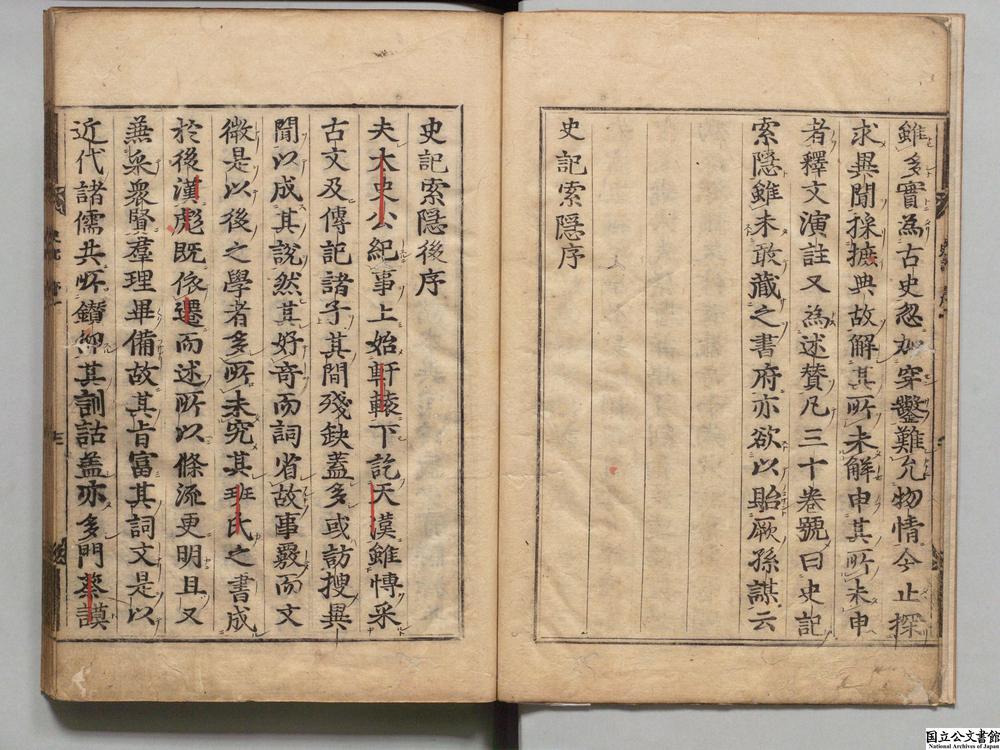 雖多實爲古史忽加穿鑿難允物情今止探
求異聞採摭典故解其所未解申其所未申
者釋文演註又爲述賛凡三十卷號曰史記
索隱雖未敢藏之書府亦欲以貽厥孫謀云
史記索隱序
史記索隱後序
夫太史公紀事上始軒轅下訖天漢雖博采
古文及傳記諸子其間殘缺蓋多或訪搜異
聞以成其説然其好奇而詞省故事覈而文
微是以後之學者多所未究其班氏之書成
於後漢彪既依遷而述所以條流更明且又
兼采衆賢羣理畢備故其旨富其詞文是以
近代諸儒共所鑽仰其訓詁蓋亦多門蔡謨
国立公文書館
National Archives of Japan